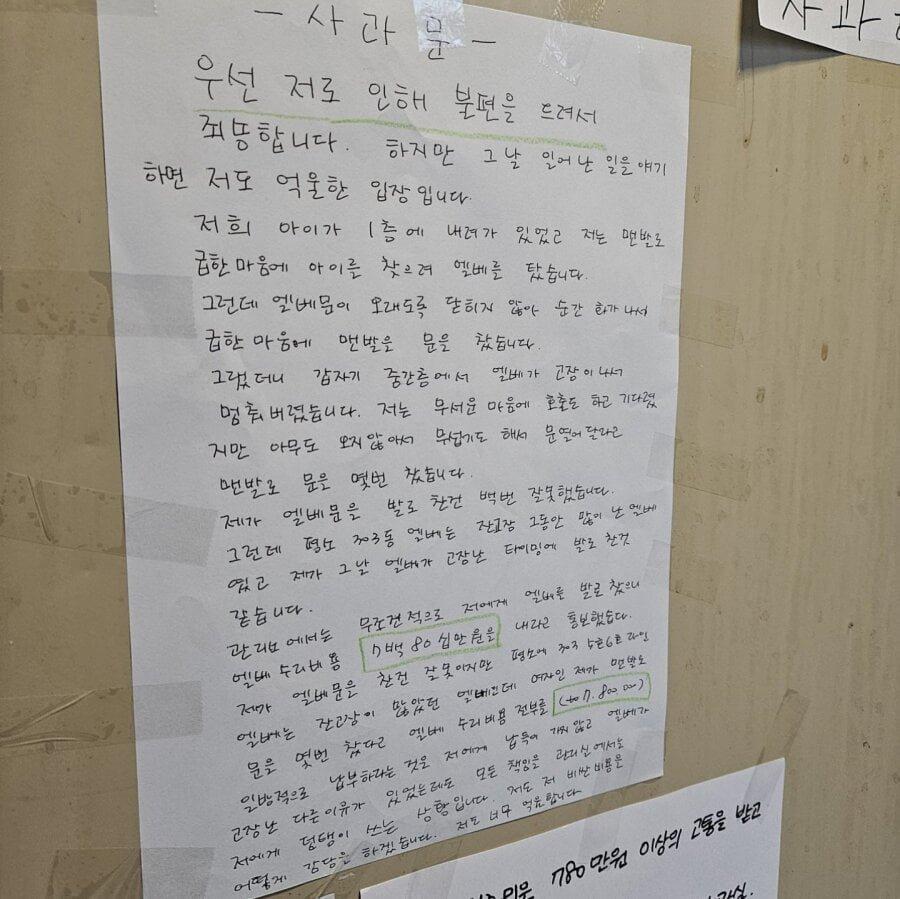 - 사 과 문 -
우선 저로 인해 불편을 드려서
죄송합니다. 하지만 그날 일어난 일을 얘기
하면 저도 억울한 입장입니다.
저희 아이가 1층에 내려가 있었고 저는 맨발로
급한 마음에 아이를 찾으려 엘베를 탔습니다.
그런데 엘베문이 오래도록 닫히지 않아 순간 화가 나서
급한 마음에 맨발을 문을 찼습니다.
그랬더니 갑자기 중간층에서 엘베가 고장이 나서
멈춰버렸습니다. 저는 무서운 마음에 호출도 하고 기다렸
지만 아무도 오지않아서 무섭기도 해서 문열어달라고
맨발로 문을 몇번 찼습니다.
제가 엘베문을 발로 찬건 백번 잘못했습니다.
그런데 평소 303동 엘베는 잔고장 그동안 많이 난 엘베
였고 제가 그날 엘베가 고장난 타이밍에 발로 찬것
같습니다.
관리소에서는 무조건적으로 저에게 엘베를 발로 찼으니
엘베 수리비용 7백 80 십만원을 내라고 통보했습다.
제가 엘베문을 찬건 잘못이지만 평소에 303 5호6호라인
엘베는 잔고장이 많았던 엘베인데 여자인 제가 맨발로
문을 몇번 찼다고 엘베 수리비용 전부를
일방적으로 납부하라는 것은 저에게 납득이 가지 않고 엘베가
고장난 다른이유가 있었는데도 모든 책임을 관리실에서는
저에게 덤탱이 쓰는 상황입니다. 저도 저 비싼비용을
어떻게 감당을 하겠습니다. 저도 너무 억울합니다
사과
780만원 이상의 고통을 받고